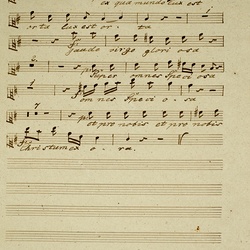 ea qua mundo lux est
orta lux est or - ta
Gaude virgo glori osa
2. Super omnes speci osa
omnes speci o - sa
7 et pro nobis et pro nobis
Christum ex o - ra.